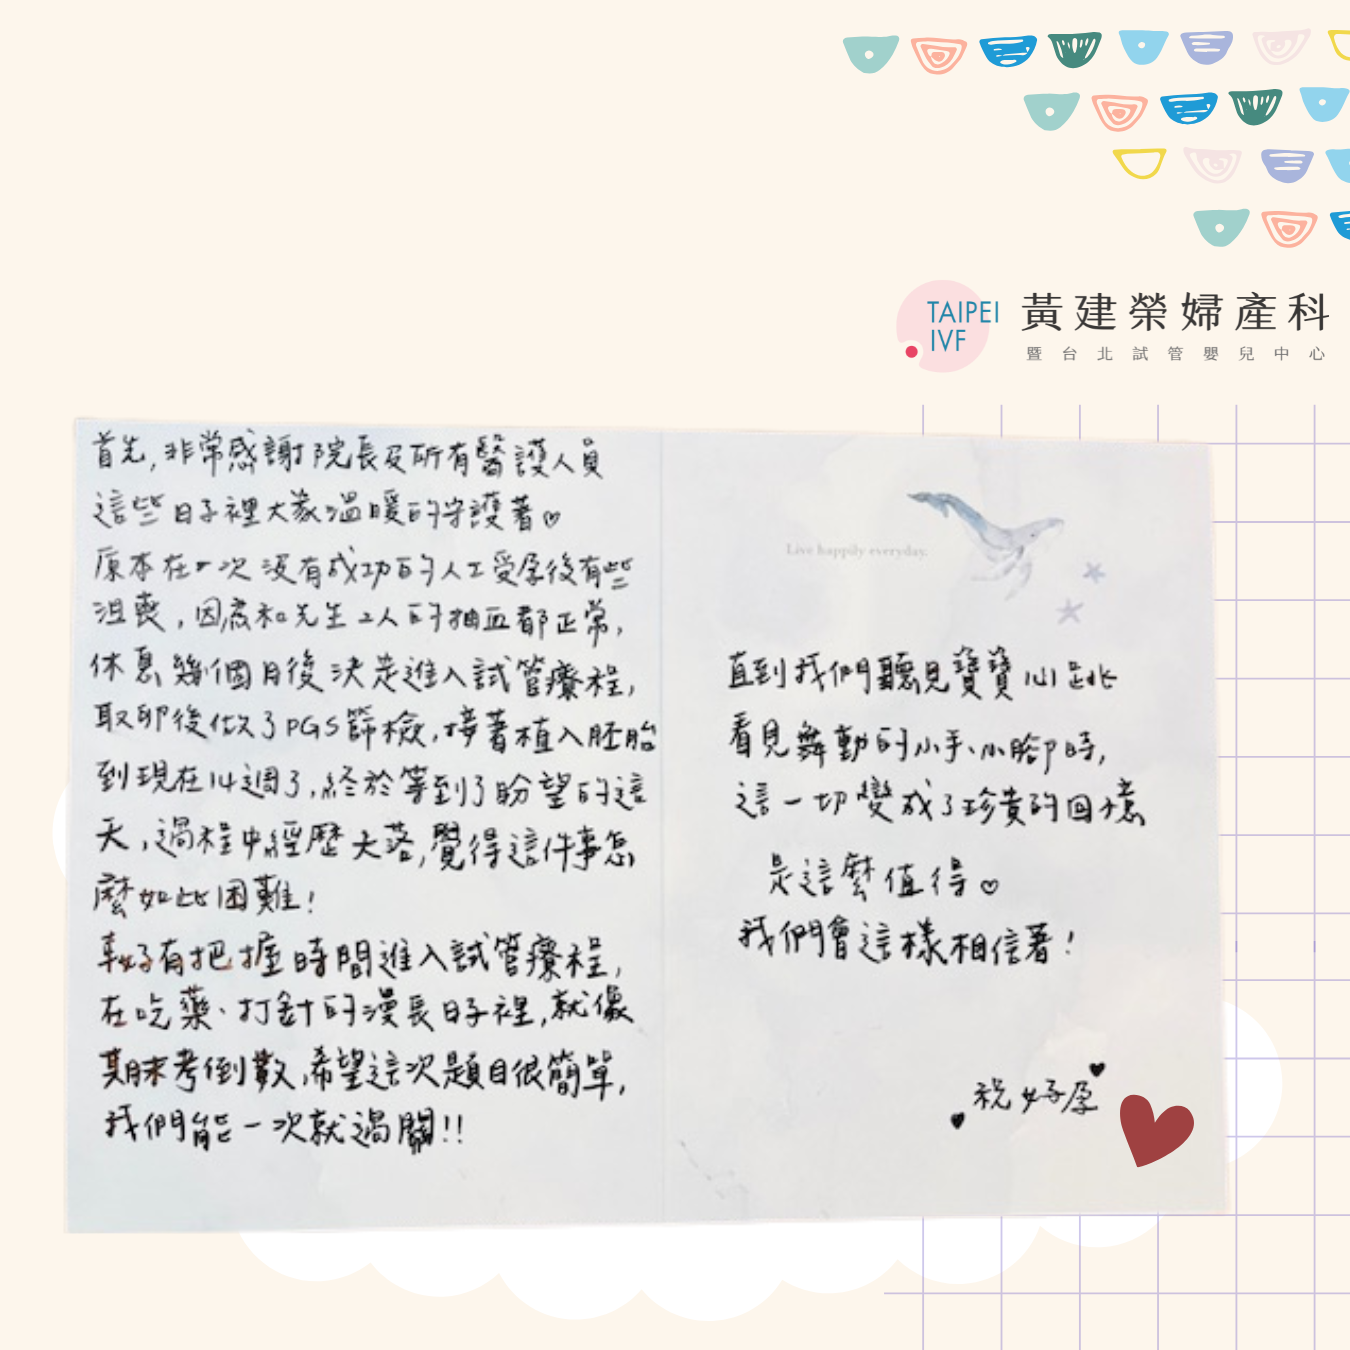 TAIPEI
IVF
黃建榮婦產科
暨台北試管嬰兒中心
首先,非常感謝院長及所有醫護人員
這些日子裡大家溫暖的守護著♡
原本在一次沒有成功的人工受孕後有些
沮喪,因為和先生2人的抽血都正常,
休息幾個月後決定進入試管療程,
取卵後做了PGS篩檢,接著植入胚胎
到現在14週了,終於等到了盼望的這
天,過程中經歷大落,覺得這件事怎
麼如此困難!
較有把握時間進入試管療程,
在吃藥、打針的漫長日子裡,就像
期末考倒數,希望這次題目很簡單,
我們能一次就過關!!
Live happily everyday.
直到我們聽見寶寶心跳
看見舞動的小手、小腳時,
這一切變成了珍貴的回憶
是這麼值得♡
我們會這樣相信著!
祝好孕